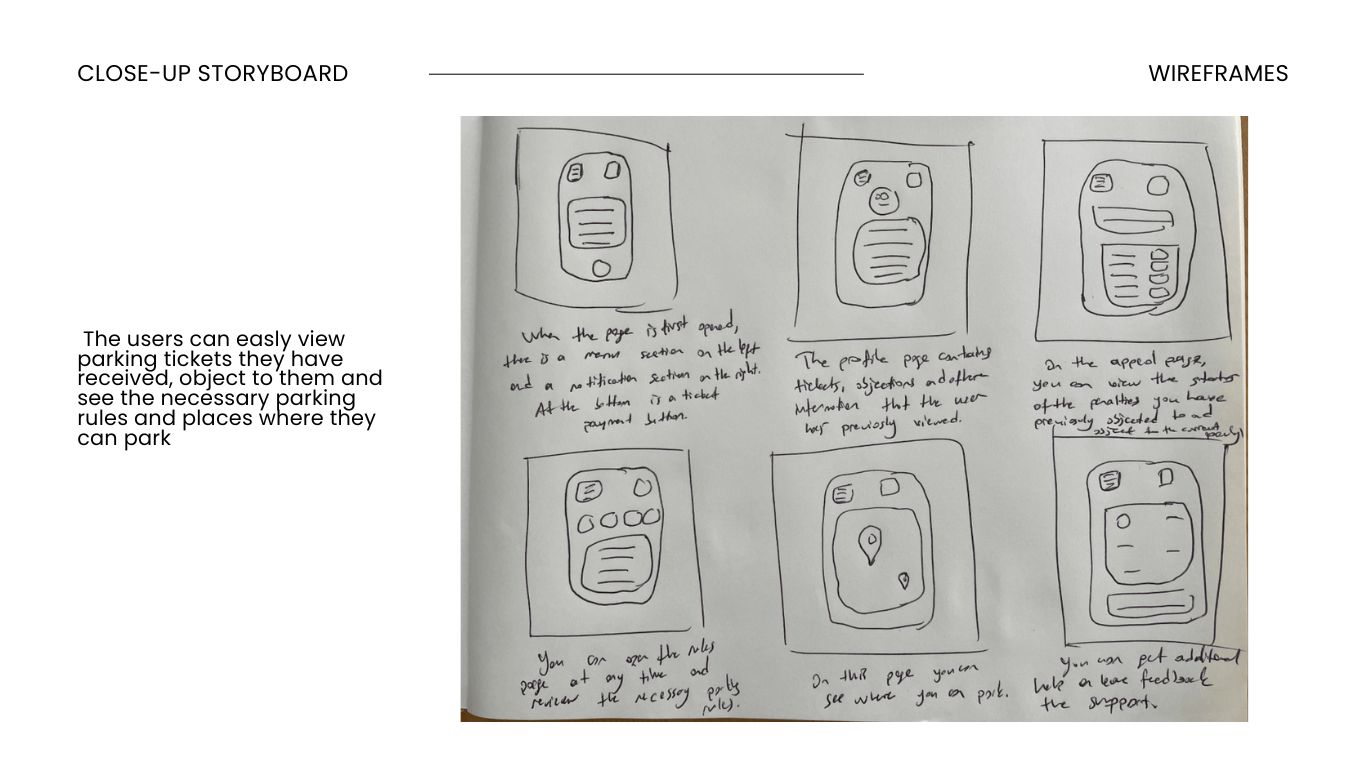 CLOSE-UP STORYBOARD
WIREFRAMES
The users can easly view
parking tickets they have
received, object to them and
see the necessary parking
rules and places where they
can park
When the page is first opened,
there is a menu section on the left
and a notification section on the right.
At the bottom is a ticket
payment button.
The profile page contains
tickets, objections and other
information that the user
has previosly viewed.
On the appeal page,
you can view the status
of the penalties you have
previously objected to and
object to the current
You can open the rules
page at any time and
review the necessary
rules.
On this page you can
see where you can park.
You can get additional
help or leave feedback
the support.